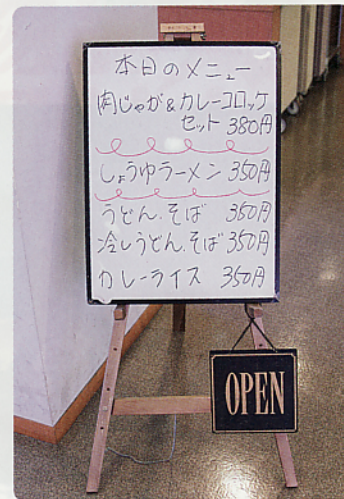 本日のメニュー
肉じゃが&カレーコロッケ
セット 380円
しょうゆラーメン 350円
うどん.そば 350円
冷しうどん.そば 350円
カレーライス 350円
OPEN